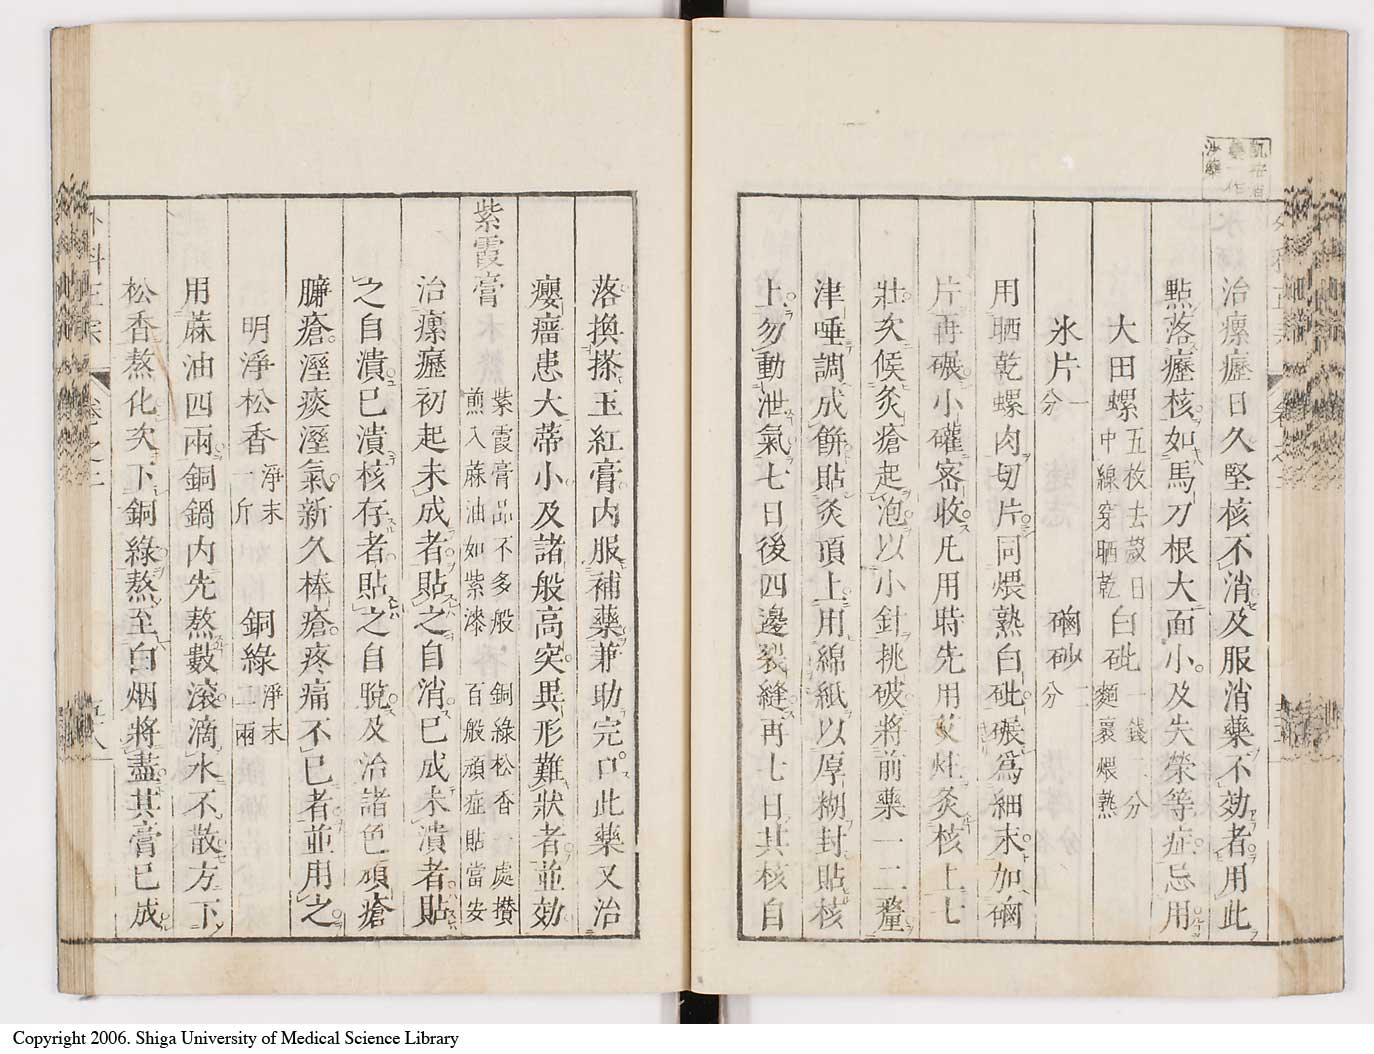 治瘰癧日久堅核不消及服消藥不効者用此
點落癧核如馬刀根大面小及失榮等症忌用
大田螺五枚去殼日中線穿晒乾　白砒一錢二分麵裹煨熟
氷片一分　硇砂二分
用晒乾螺肉切片同煨熟白砒碾爲細末加硇
片再碾小礶宻收凡用時先用艾炷灸核上七
壯次候灸瘡起泡以小針挑破將前藥一二釐
津唾調成餅貼灸頂上用綿紙以厚糊封貼核
上勿動泄氣七日後四邊裂縫再七日其核自
落換搽玉紅膏内服補藥兼助完口此藥又治
癭瘤患大蒂小及諸般高突異形難狀者並効
紫霞膏　紫霞膏品不多般　銅綠松香一處攅　煎入蔴油如紫漆　百般頑症貼當安
治瘰癧初起未成者貼之自消已成未潰者貼
之自潰已潰核存者貼之自脫及治諸色頑瘡
臁瘡溼痰溼氣新久棒瘡疼痛不已者並用之
明淨松香淨末二斤　銅綠淨末二兩
用蔴油四兩銅鍋内先熬數滾滴水不散方下
松香熬化次下銅綠熬至白烟將盡其膏已成
外科正宗　卷之二
Copyright 2006. Shiga University of Medical Science Library